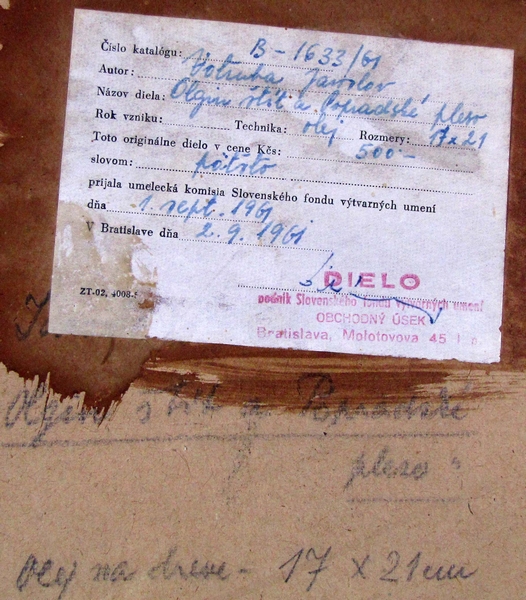 Číslo katalógu: B-1633/61
Autor: Votruba Jaroslav
Názov diela: Olgin štít a Popradské pleso
Rok vzniku: Technika: olej Rozmery: 17x21
Toto originálne dielo v cene Kčs: 500.-
slovom: päťsto
prijala umelecká komisia Slovenského fondu výtvarných umení
dňa 1. sept. 1961
V Bratislave dňa 2.9.1961
DIELO
ZT-02, 4008-5
podnik Slovenského fondu výtvarných umení
OBCHODNÝ ÚSEK
Bratislava, Molotovova 45 I p.
Olgin štít a Popradské
pleso"
Olej na dreve - 17 x 21 cm